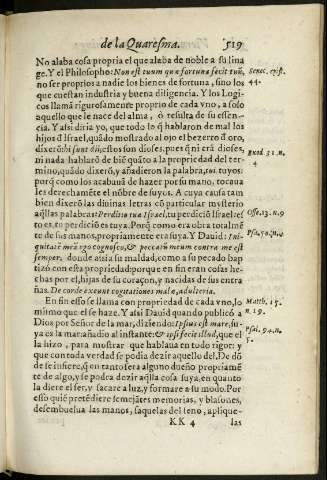 de la Quaresma. 519
No alaba cosa propria el que alaba de noble a su lina
ge. Y el Philosopho: Non est tuum quæ fortuna fecit tuũ,
no ser proprios a nadie los bienes de fortuna, sino los
que cuestan industria y buena diligencia. Y los Logi-
cos llamã rigurosamente proprio de cada vno, a solo
aquello que le nace del alma, ò resulta de su essen-
cia. Y assi diria yo, que todo lo q̃ hablaron de mal los
hijos d̃ Israel, quãdo mostrado al ojo el bezerro d̃ oro,
dixerõ: hi sunt dii; estos son dioses, pues q̃ ni erã dioses,
ni nada hablarõ de biẽ quãto a la propriedad del ter-
mino, quãdo dixerõ, y añadieron la palabra, tui, tuyos
porq̃ como los acabauã de hazer por su mano, tocaua
les derechamẽte el nõbre de suyos. A cuya causa tam
bien dixerõ las diuinas letras cõ particular mysterio
aq̃llas palabras: Perditio tua Israel, tu perdiciõ Israel: es
to es, tu perdiciõ es tuya. Porq̃ como era obra totalmẽ
te de sus manos, propriamente era suya. Y Dauid: Ini-
quitatẽ meã ego cognosco, & peccatũ meum contra me est
semper, donde assia su maldad, como a su pecado bap
tizó con esta propriedad: porque en fin eran cosas he-
chas por el, hijas de su coraçon, y nacidas de sus entra
ñas. De corde exeunt cogitationes malæ, adulteria.
En fin esso se llama con propriedad de cada vno, lo
mismo que el se haze. Y assi Dauid quando publicó a
Dios por Señor de la mar, diziendo: Ipsius est mare, su-
ya es la mar: añadio al instante: & ipse fecit illud, que el
la hizo, para mostrar que hablaua en todo rigor: y
que con toda verdad se podia dezir aquello del. De dõ
de se infiere, q̃ en tanto sera alguno dueño propriamẽ
te de algo, y se podra dezir aq̃lla cosa suya, en quanto
la diere el ser, y sacare a luz, y formare a su modo. Por
esso quiẽ pretẽdiere semejãtes memorias, y blasones,
desembuelua las manos, saquelas del seno, aplique-
KK 4 las
Senec. epist.
44.
Exod. 32. n.
4
Osse. 13. n. 9
Psa. 50. n. 4
Matth. 15.
n. 19.
Psal. 94. n.
5.